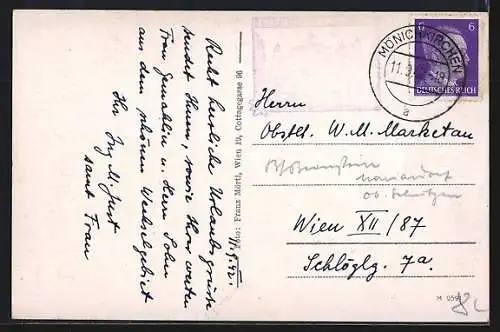 11.9.42.
Recht herzliche Urlaubsgrüsse
sendet Ihnen, sowie Ihrer werten
Frau Gemahlin u. Herrn Sohn
aus dem schönen Wechselgebiet
Ihr Ing. M. Just
samt Frau
Photo: Franz Mörtl, Wien 19, Cottagegasse 96
MÖNICHKIRCHEN
11.9.
a
6
DEUTSCHES REICH
Herrn
Obstlt. W. M. Marketau
Wien XII/87
Schlöglg. 7a.